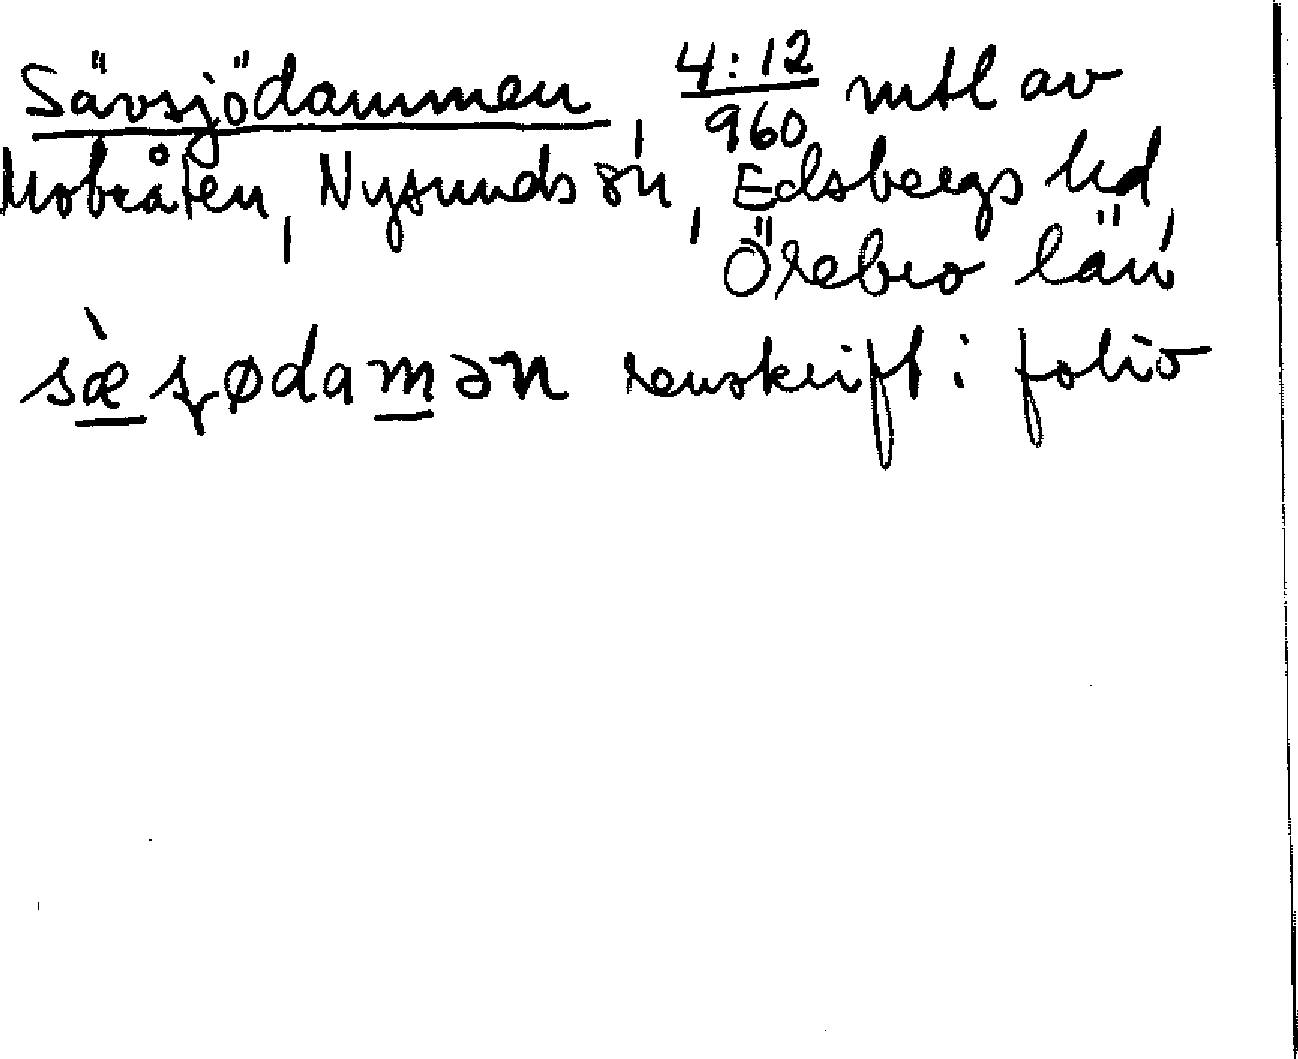 Sävsjödammen, 4:12/960 mtl av
Mobråten, Nysunds sn, Edsbergs hd,
Örebro län
sæ̀ sjødamən renskrift i folio